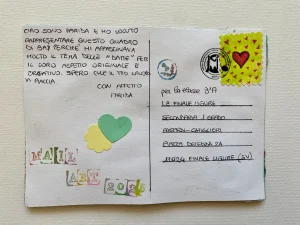 CIAO SONO MARIDA E HO VOLUTO
RAPPRESENTARE QUESTO QUADRO
DI BAJ PERCHÉ MI AFFASCINAVA
MOLTO IL TEMA DELLE "DAME" PER
IL LORO ASPETTO ORIGINALE E
CREATIVO. SPERO CHE IL MIO LAVORO
VI PIACCIA
CON AFFETTO
MARIDA
MAIL
ART 2025
per la classe 3°A
IC FINALE LIGURE
SECONDARIA I GRADO
PIAZZA
17024 FINALE LIGURE (SV)